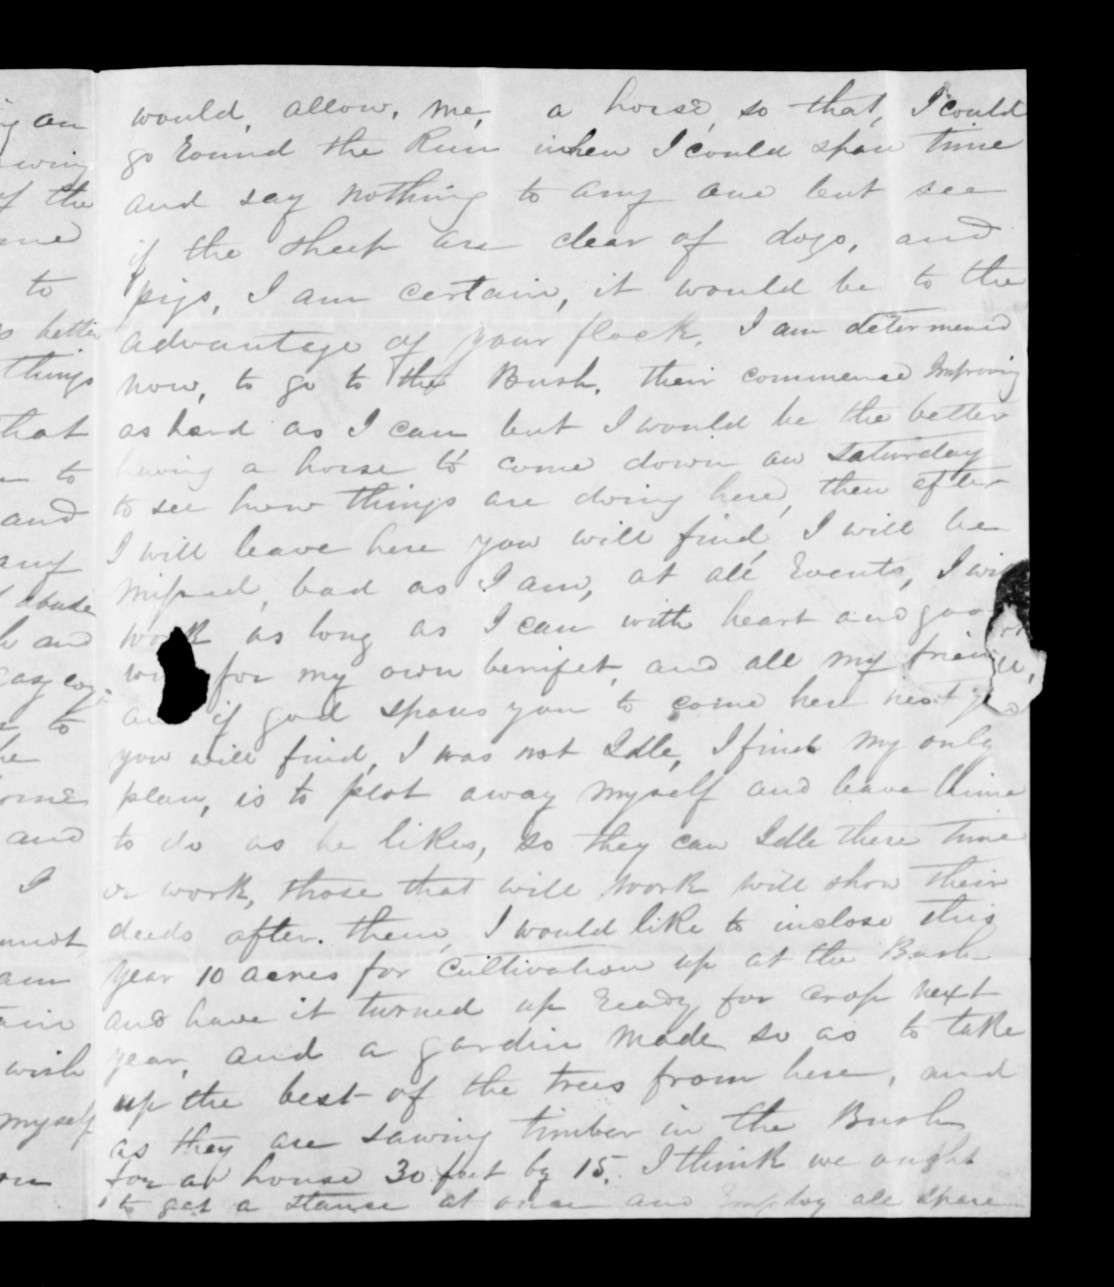 would, allow, me, a horse, so that, I could
go Round the Run when I could spare time
and say nothing to any one but see
if the sheep are clear of dogs, and
pigs, I am certain, it would be to the
advantage of your flock. I am determened
now, to go to the Bush, their commence Improving
as hard as I can but I would be the better
having a horse to come down on Saturday
to see how things are doing here, then after
I will leave here you will find, I will be
missed, bad as I am, at all Events, I will
work as long as I can with heart and good
will for my own benifet, and all my friends,
and if god spares you to come here next year
you will find, I was not Idle, I find my only
plan, is to plot away myself and leave Hime
to do as he likes, so they can Idle there time
or work, those that will work will show their
deeds after them, I would like to inclose this
year 10 acres for Cultivation up at the Bush
and have it turned up Ready for crop next
year, and a gardin made so as to take
up the best of the trees from here, and
as they are sawing timber in the Bush
for an house 30 feet by 15. I think we ought
to get a Stance at once and Employ all spare
ing an
of the
me
to
better
things
that
to
and
any
abuse
and
to
and
I
am
wish
myself